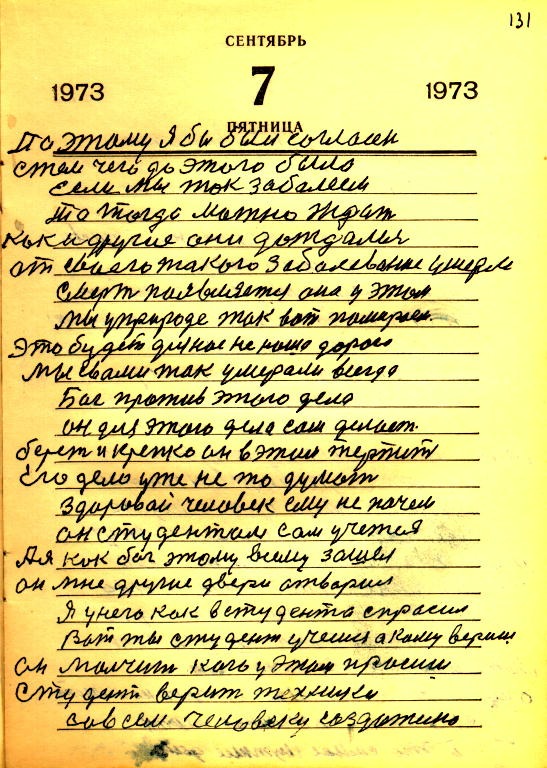 131
СЕНТЯБРЬ
7
1973 1973
ПЯТНИЦА
По этому я бы был согласен
стем чего до этого было
если мы так забалеем
то тогда можно ждат
как и другие они дождалися
от своего такого заболевание умерли
Смерт появляется она у этом
мы у природе так вот помираем.
Это будет длиное не наша дорога
мы свами так умерали всегда
Бог против этого дела
он для этого дела сам делает.
берет и крепко он в этом терпит
Его дело уже не то думат
здоровай человек ему не почем
он студентом сам учется
А я как бог этому всему зашел
он мне другие двери отворил
Я у него как в студента спросил
Вот ты студент учеш а кому вериш
он молчит кого у этом просиш
студент верит технике
совсем человеку создажино